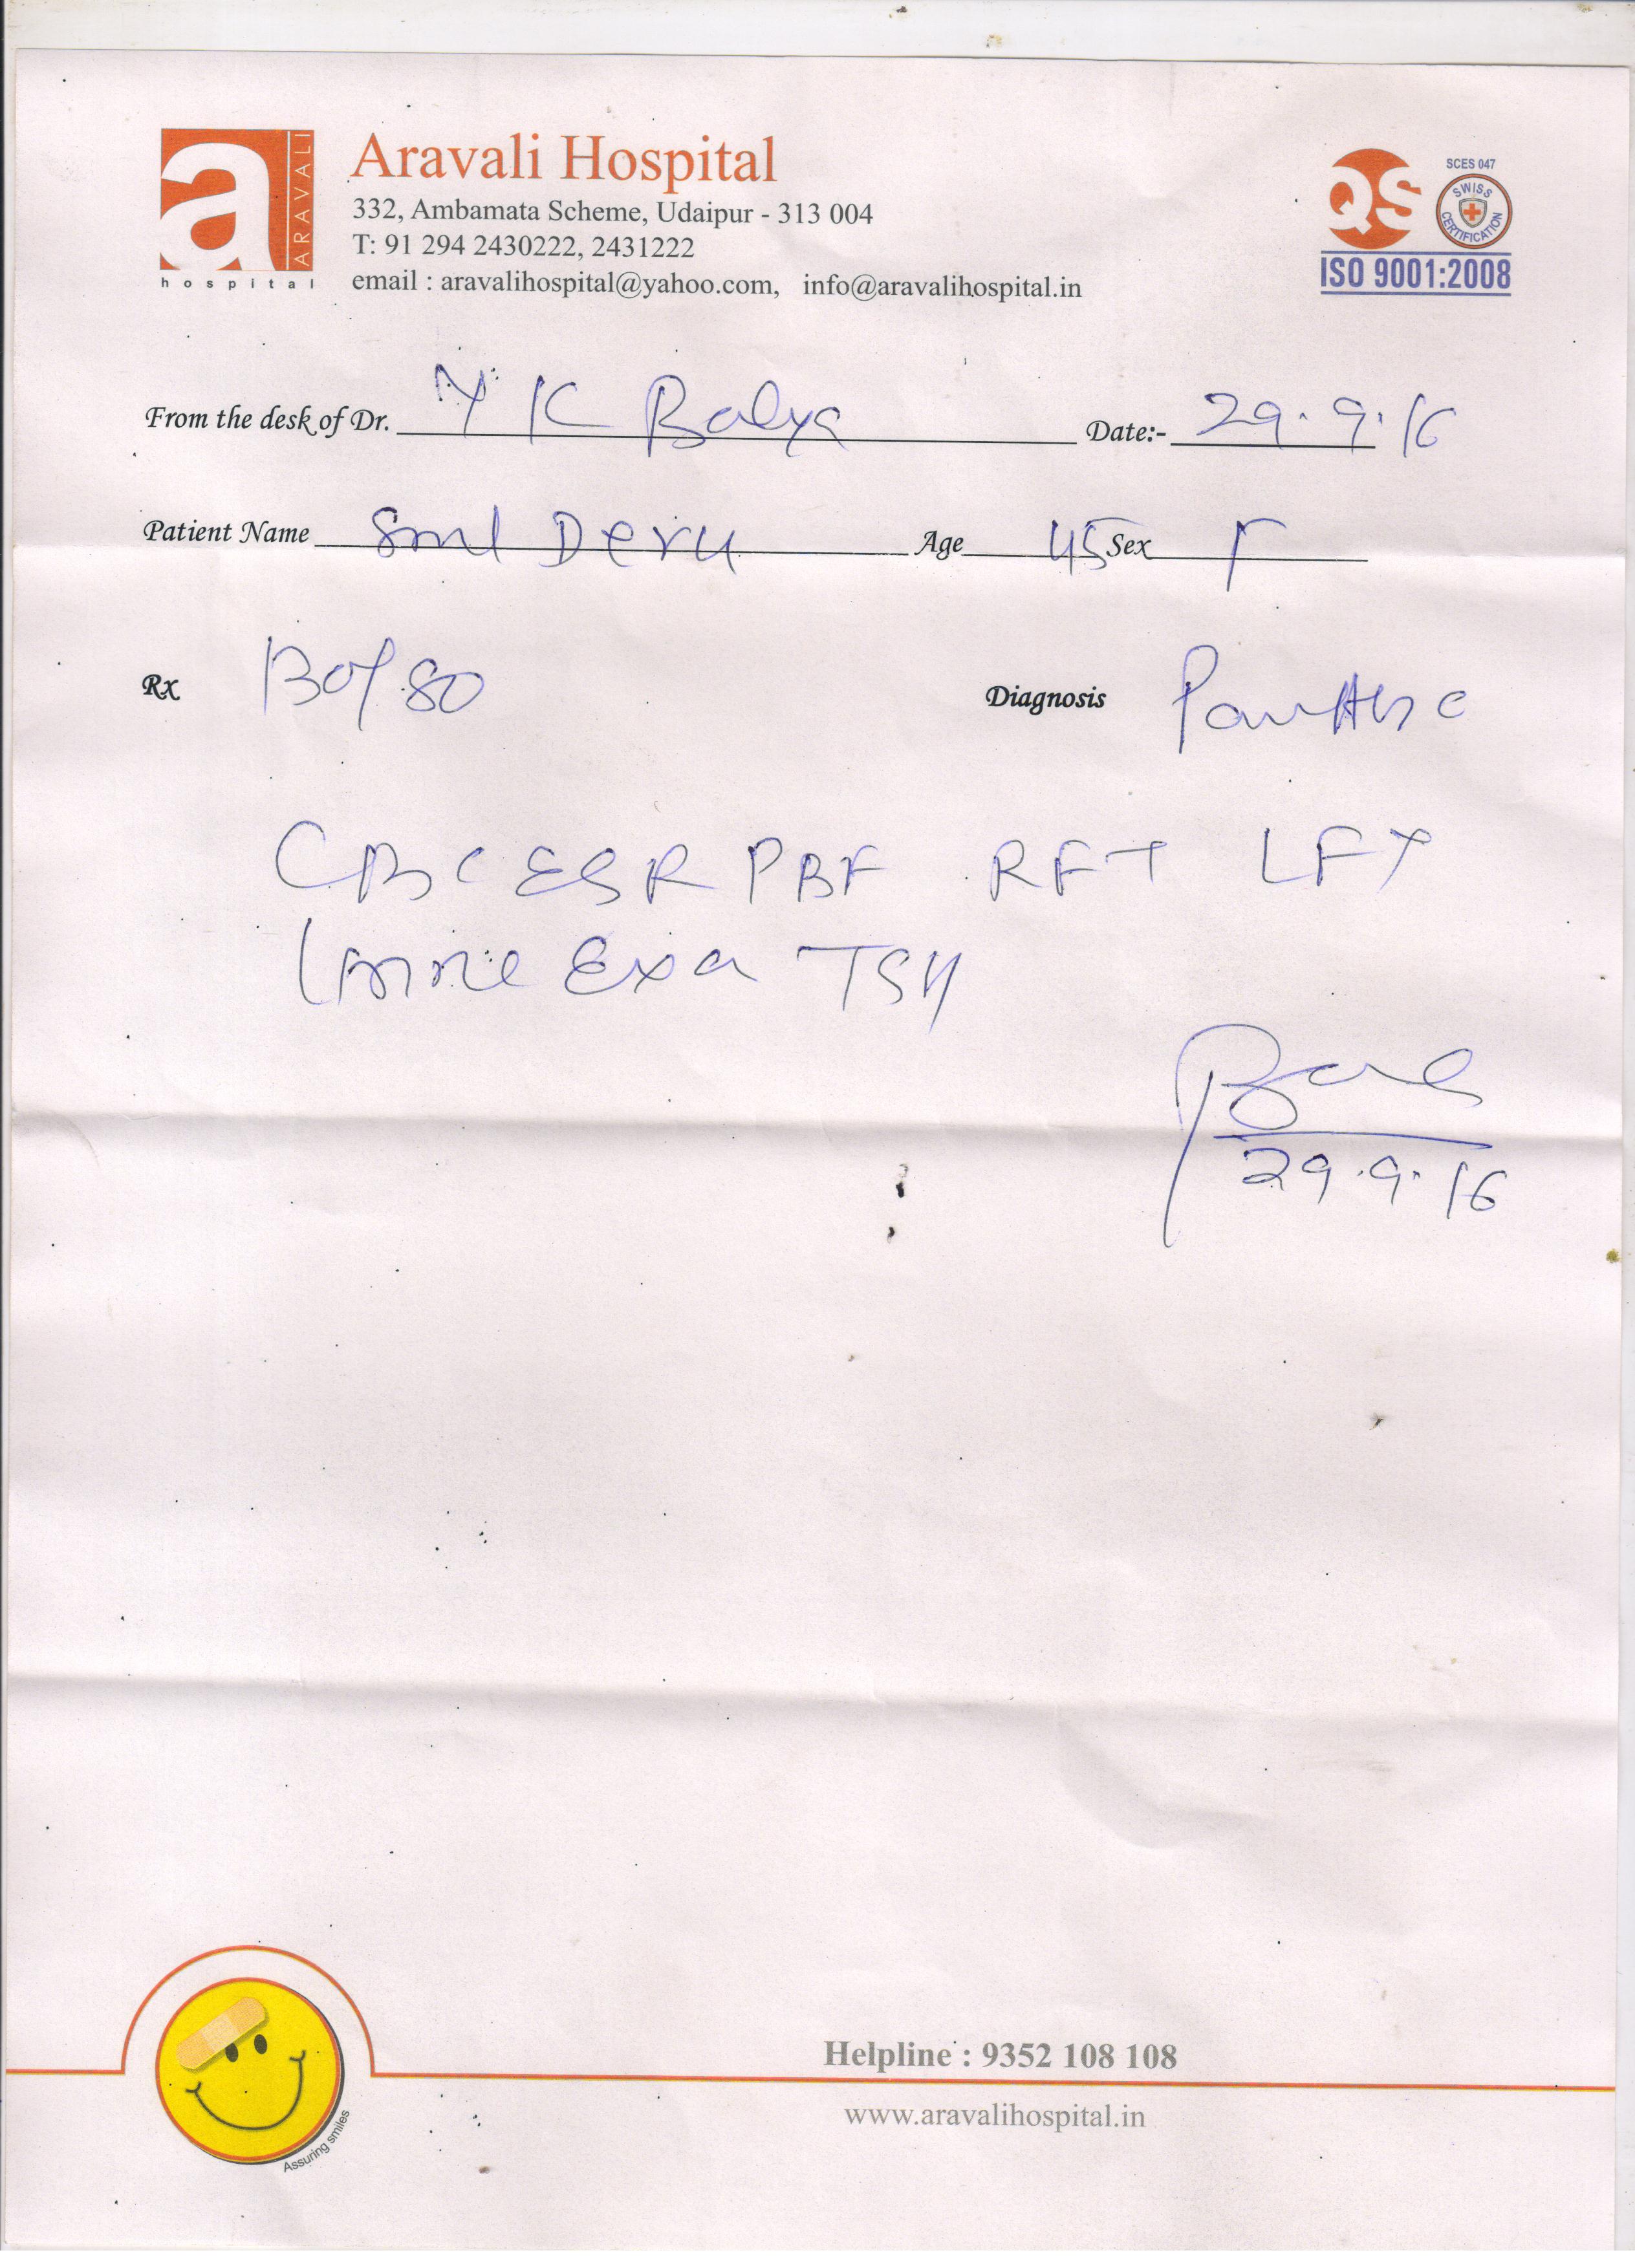 ARAVALI
hospital
Aravali Hospital
332, Ambamata Scheme, Udaipur - 313 004
T: 91 294 2430222, 2431222
email : aravalihospital@yahoo.com, info@aravalihospital.in
SCES 047
QS
SWISS CERTIFICATION
ISO 9001:2008
From the desk of Dr. Y K Bolya Date:- 29.9.16
Patient Name Smt Age 45 Sex F
Rx 130/80 Diagnosis
CBC ESR PBF RFT LFT
Urine Exa TSH
29.9.16
Assuring smiles
Helpline : 9352 108 108
www.aravalihospital.in